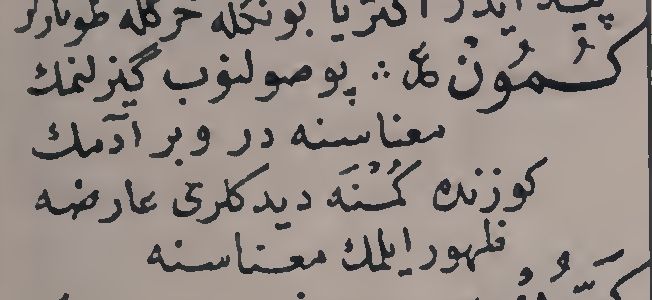 ايدر اكثريا بونكله خركله طوبارلر
كُمُونْ ع :· پوصولنوب گيزلنمك
معناسنه در و بر آدمك
كوزنده كُمْنَه ديدكلرى عارضه
ظهور ايلمك معناسنه